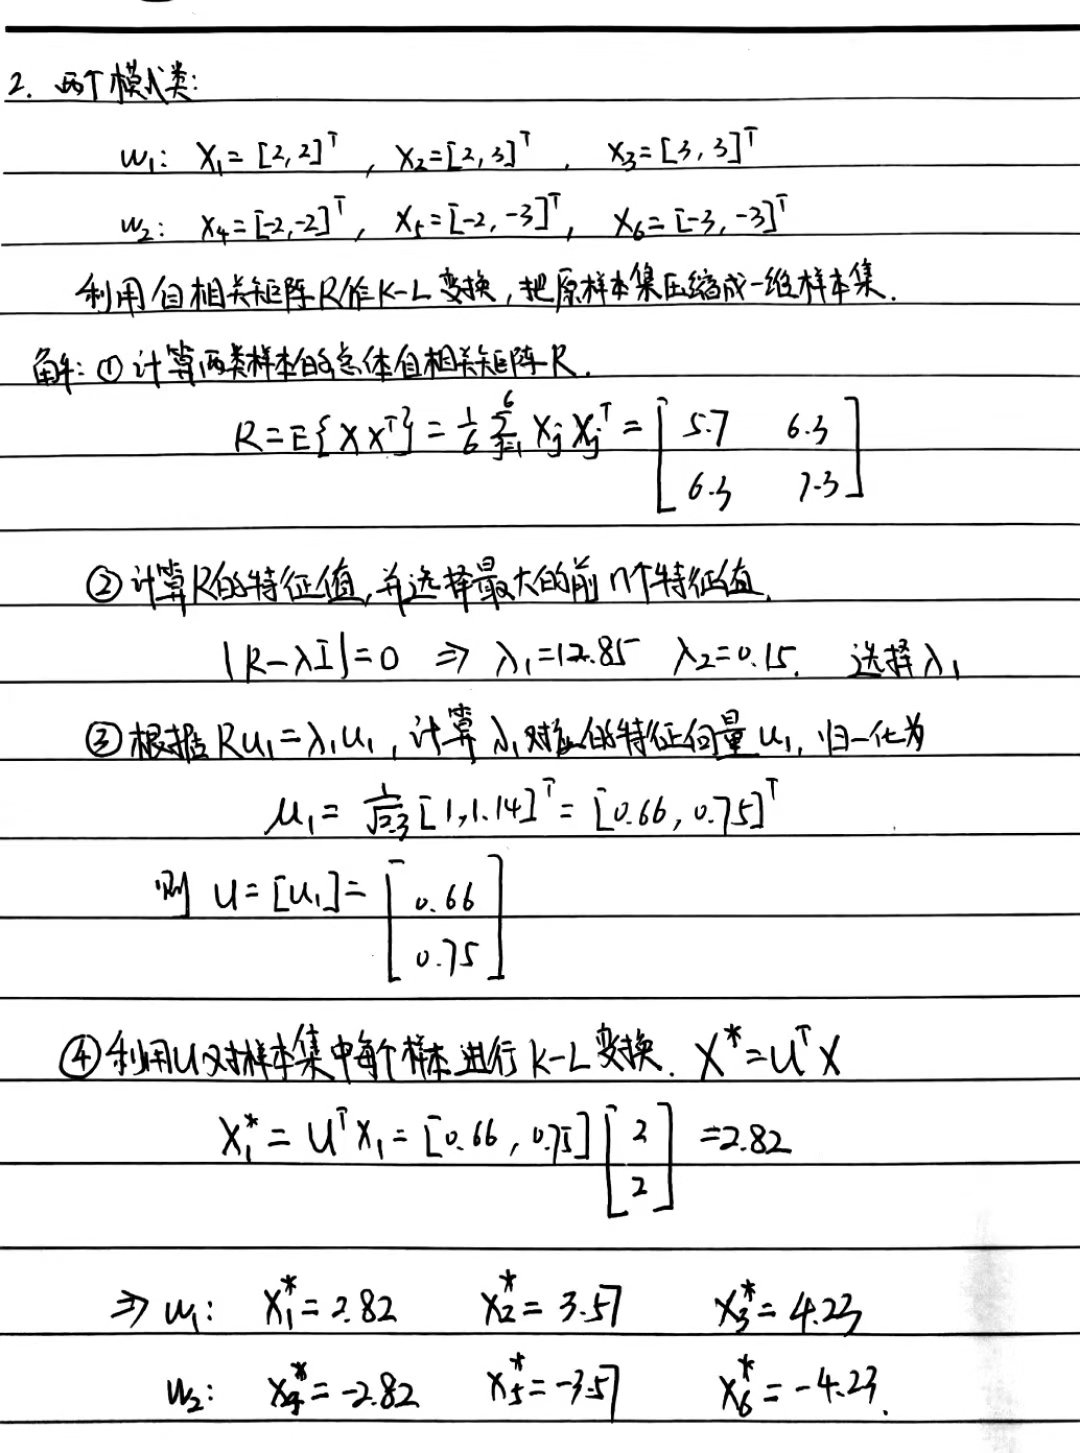 2. 两个模式类:
w₁: X₁=[2,2]ᵀ, X₂=[2,3]ᵀ, X₃=[3,3]ᵀ
w₂: X₄=[-2,-2]ᵀ, X₅=[-2,-3]ᵀ, X₆=[-3,-3]ᵀ
利用自相关矩阵R作K-L变换,把原样本集压缩成一维样本集.
解:①计算两类样本的总体自相关矩阵R.
R=E{XXᵀ}=1/6 Σ_{j=1}^{6} XⱼXⱼᵀ = [5.7 6.3
6.3 7.3]
②计算R的特征值,并选择最大的前n个特征值.
|R-λI|=0 ⇒ λ₁=12.85 λ₂=0.15. 选择λ₁
③根据Ru₁=λ₁u₁,计算λ₁对应的特征向量u₁,归一化为
u₁= 1/√2.3 [1,1.14]ᵀ=[0.66,0.75]ᵀ
则 U=[u₁]=[0.66
0.75]
④利用U对样本集中每个样本进行K-L变换. X*=UᵀX
X₁*=UᵀX₁=[0.66,0.75][2 =2.82
2]
⇒ w₁: X₁*=2.82 X₂*=3.57 X₃*=4.23
w₂: X₄*=-2.82 X₅*=-3.57 X₆*=-4.23.